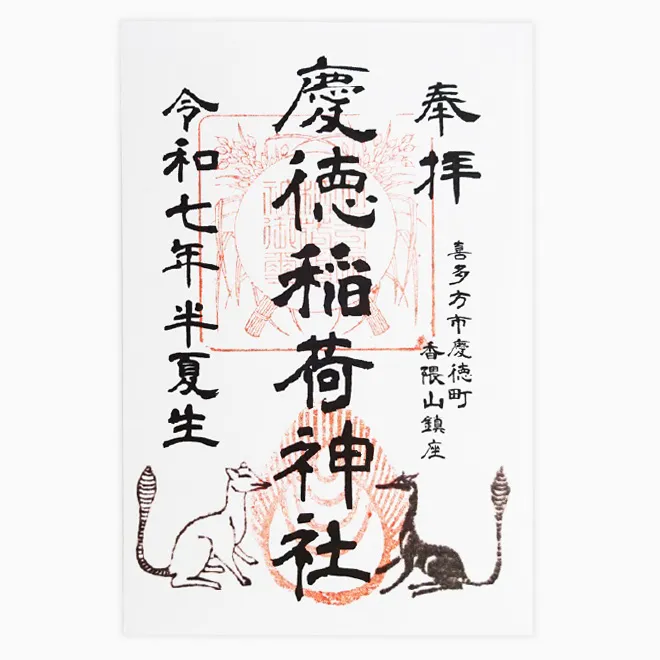 奉拝
喜多方市慶徳町
香隈山鎮座
慶徳稲荷神社
令和七年半夏生